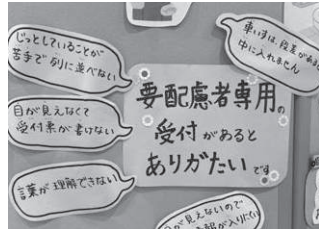 じっとしていることが
苦手で列に並べない
車いすは、段差があると
中に入れません
目が見えなくて
受付票が書けない
要配慮者専用の
受付があると
ありがたいです
言葉が理解できない
目が見えないので
情報が入りにくい